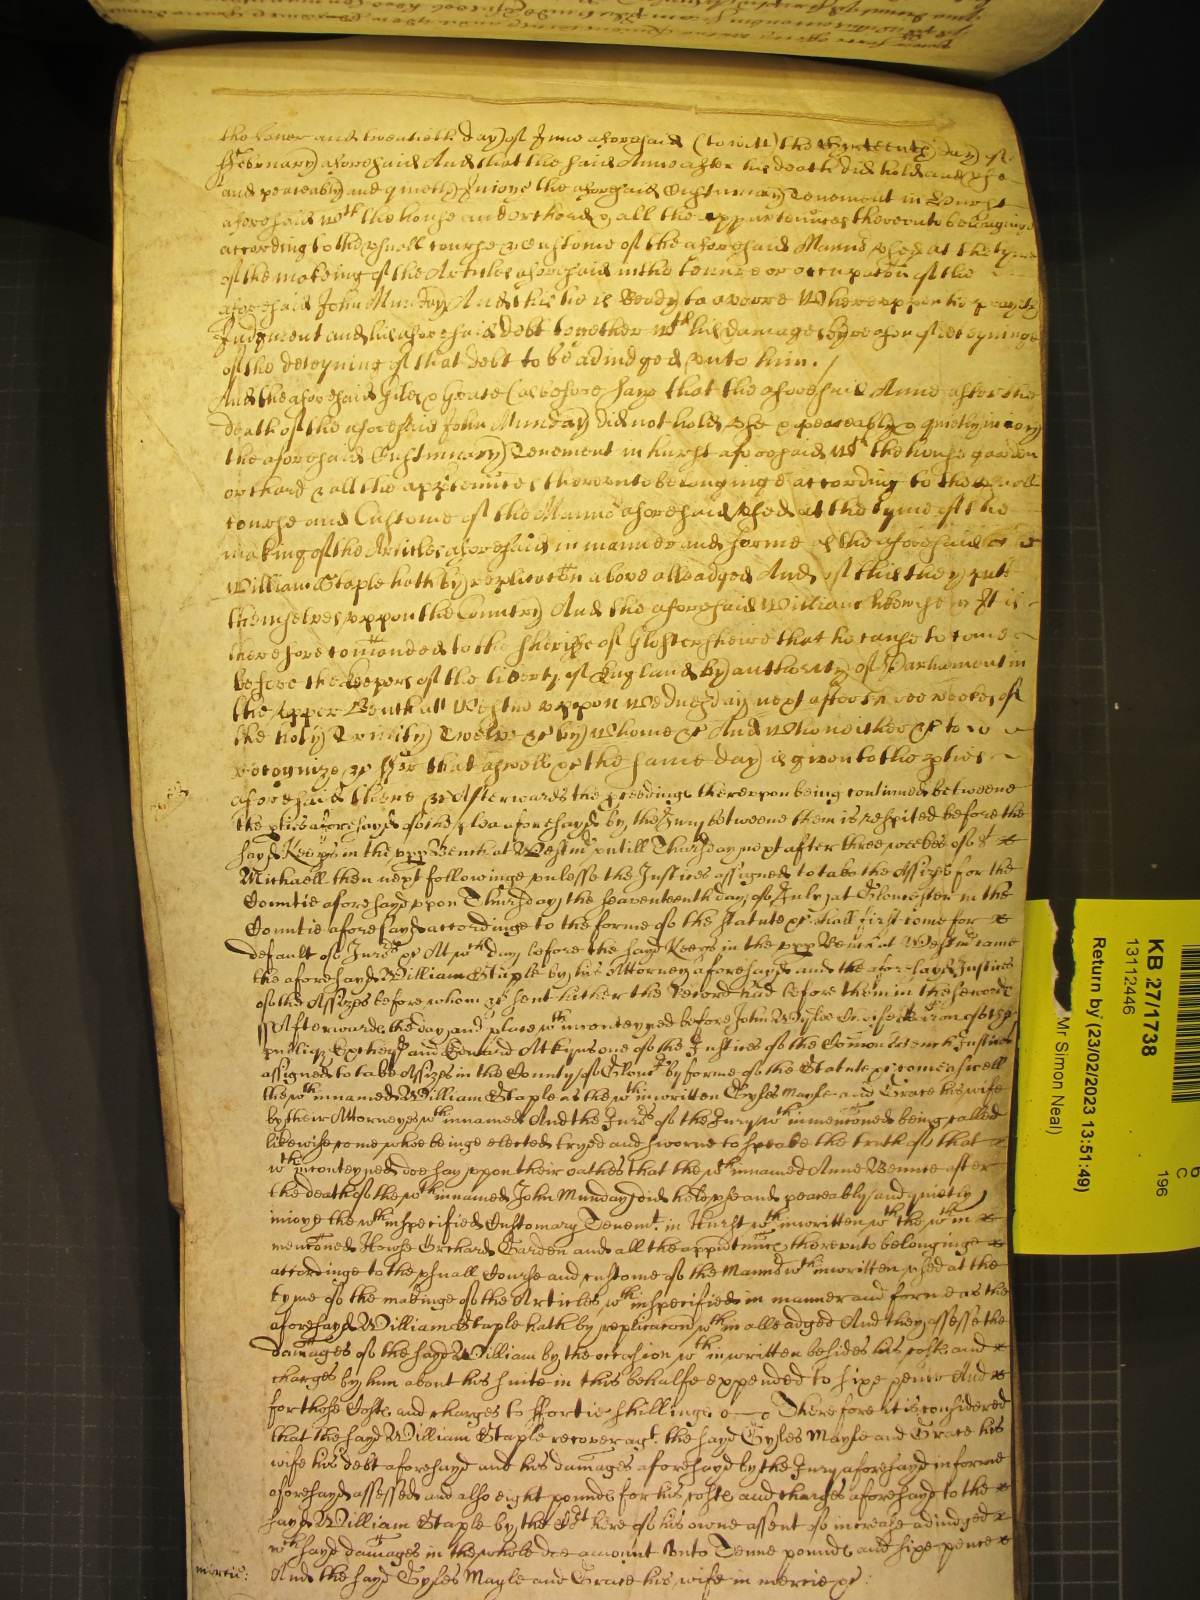 the seaver and twentieth day of June aforesaid (to witt) the thirteenth day of
ffebruary aforesaid And that the said Anne after his death did hold and use
and peaceably and quietly Enioye the aforesaid Custumary Tenement in Hurst
aforesaid wth the house and orchard & all the appurtennces thereunto belonginge
according to the usuall course & Custome of the aforesaid Mannor used at the tyme
of the making of the Articles aforesaid in the tenure or occupacon of the
aforesaid John Munday And this he is Ready to averre Whereuppon he prayeth
Judgment and his aforesaid debt together wth his damages by reason of deteyninge
of the deteyning of that debt to be adiudged unto him./
And the aforesaid Giles & Grace (as before) saye that the aforesaid Anne after the
death of the aforesaid John Munday did not hold use & peaceably & quietly inioy
the aforesaid Custumary Tenement in hurst aforesaid wth the house garden
orchard & all the apptennces thereunto belonginge according to the usuall
course and Custome of the Mannor aforesaid used at the tyme of the
making of the Articles aforesaid in manner and forme as the aforesaid
William Staple hath by replicacon above alleadged And of this they putt
themselves uppon the Country And the aforesaid William likewise &c It is
therefore comanded to the Sheriffe of Glostershiere that he cause to come
before the keepers of the liberty of England by authority of Parliament in
the upper Bench att Westm uppon Wednesday next after three weekes of
the holy Trinity Twelve &c by whome &c And who neither &c to
recognize &c ffor that aswell &c the same day is given to the pties
aforesaid there &c Afterwards the pceedings thereuppon being continued betweene
the pties aforesayd of the plea aforesayd by the Jury betweene them is respited before the
sayd Keeps in the upp Bench at Westm untill Thursday next after three weekes of St
Michaell then next followinge unlesse the Justices assigned to take the Assizes for the
Countie aforesayd uppon Thursday the seaventeenth day of July at Gloucester in the
Countie aforesayd accordinge to the forme of the statute &c shall first come for
default of Jurors &c At wch day before the sayd Keeps in the upp Bench at Westm came
the aforesayd William Staple by his Attorney aforesayd and the aforesayd Justices
of the Assizes before whom &c sent hither the Record had before them in these words
Afterwards the day and place wthin conteyned before John Wylde Cheife Baron of the
publiq Exchequer and Edward Atkyns one of the Justices of the Common Bench Justices
assigned to take Assizes in the County of Glouc by forme of the Statute &c come aswell
the wthin named William Staple as the wthin written Gyles Mayle and Grace his wife
by their Attorneyes wthin named And the Jurors of the Jury wthin mencioned being called
likewise come who beinge elected tryed and sworne to speake the truth of that
wthin conteyned doe say uppon their oathes that the wthin named Anne Bennie after
the death of the wthin named John Munday did hold use and peaceably and quietly
inioye the wthin specified Customary Tenemt in Hurst wthin written wth the wthin
mencioned Howse Orchard Garden and all the apputennces thereunto belonginge
accordinge to the usuall Course and custome of the Mannor wthin written used at the
tyme of the makinge of the Articles wthin specified in manner and forme as the
aforesayd William Staple hath by replicacon wthin alleadged And they assesse the
damages of the sayd William by the occasion wthin written besides his costs and
charges by him about his suite in this behalfe expended to sixe pence And
for those Costs and charges to ffortie shillings Therefore it is considered
that the sayd William Staple recover agt the sayd Gyles Mayle and Grace his
wife his debt aforesayd and his damages aforesayd by the Jury aforesayd in forme
aforesayd assessed and also eight pounds for his costs and charges aforesayd to the
sayd William Staple by the Cort here of his owne assent of increase adiudged
wch sayd damages in the whole doe amount unto Tenne pounds and sixe pence
And the sayd Gyles Mayle and Grace his wife in mercie &c:
mercie:
KB 27/1738
13112446
Return by (23/02/2023 13:51:49)
Mr Simon Neal)
196
C
6